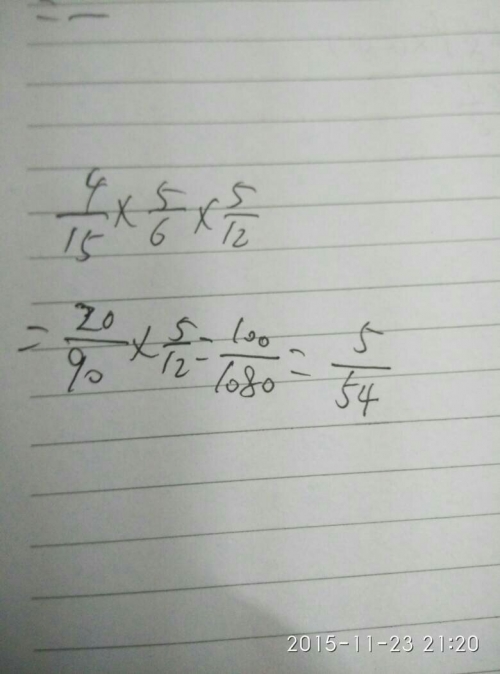 = —
4/15 × 5/6 × 5/12
= 20/90 × 5/12 = 100/1080 = 5/54
2015-11-23 21:20